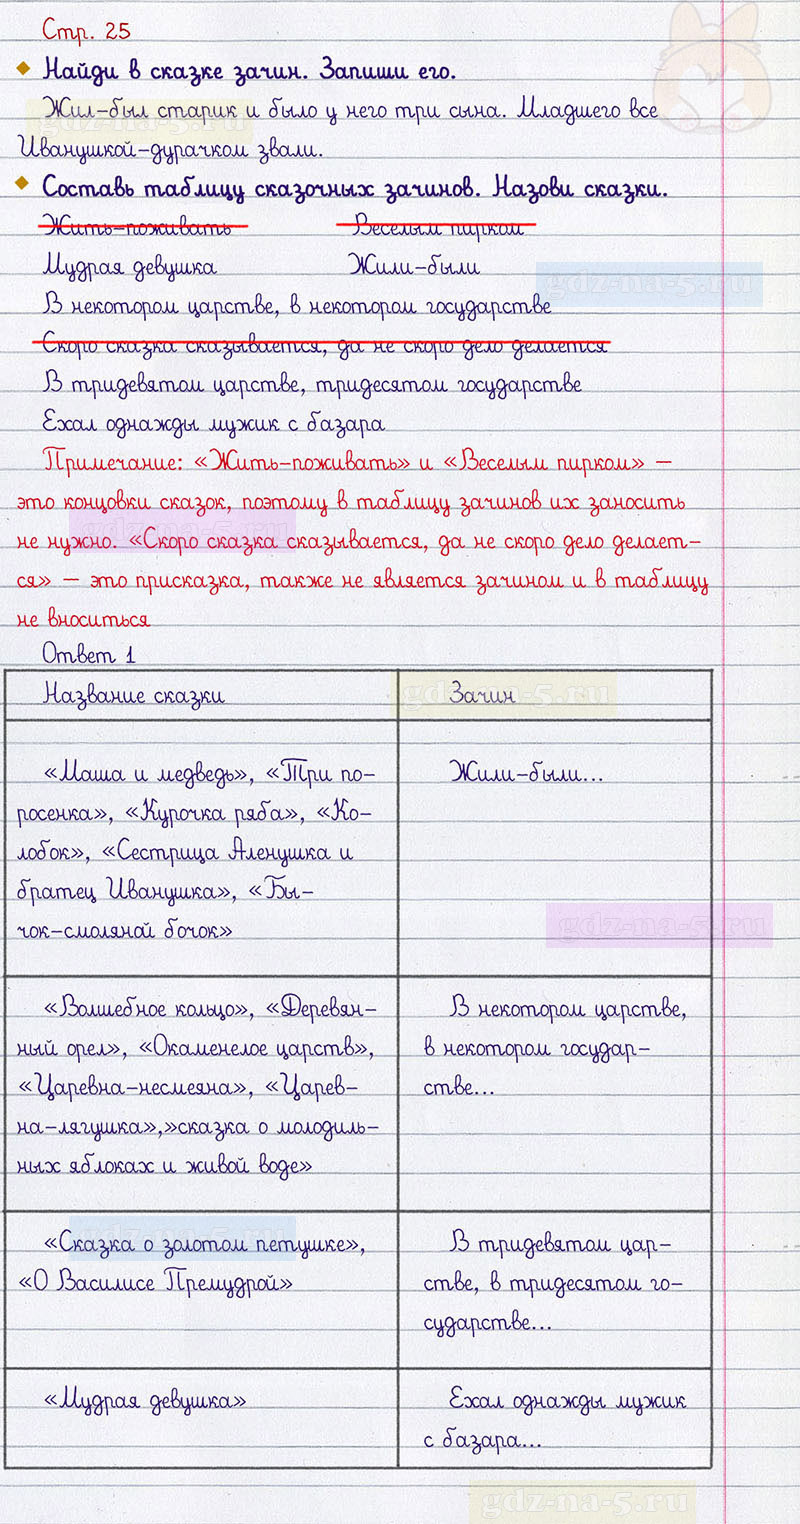 Стр. 25
Найди в сказке зачин. Запиши его.
Жил-был старик и было у него три сына. Младшего все
Иванушкой-дурачком звали.
gdz-na-5.ru
Составь таблицу сказочных зачинов. Назови сказки.
Жить-поживать Веселым пирком
Мудрая девушка Жили-были
gdz-na-5.ru
В некотором царстве, в некотором государстве
Скоро сказка сказывается, да не скоро дело делается
В тридевятом царстве, тридесятом государстве
Ехал однажды мужик с базара
Примечание: «Жить-поживать» и «Веселым пирком» —
это концовки сказок, поэтому в таблицу зачинов их заносить
не нужно. «Скоро сказка сказывается, да не скоро дело делает-
ся» — это присказка, также не является зачином и в таблицу
не вноситься
gdz-na-5.ru
Ответ 1
Название сказки Зачин
gdz-na-5.ru
«Маша и медведь», «Три по-
росенка», «Курочка ряба», «Ко-
лобок», «Сестрица Аленушка и
братец Иванушка», «Бы-
чок-смоляной бочок»
Жили-были...
gdz-na-5.ru
«Волшебное кольцо», «Деревян-
ный орел», «Окаменелое царств»,
«Царевна-несмеяна», «Царев-
на-лягушка»,»сказка о молодиль-
ных яблоках и живой воде»
В некотором царстве,
в некотором государ-
стве...
«Сказка о золотом петушке»,
«О Василисе Премудрой»
gdz-na-5.ru
В тридевятом цар-
стве, в тридесятом го-
сударстве...
«Мудрая девушка»
Ехал однажды мужик
с базара...
gdz-na-5.ru